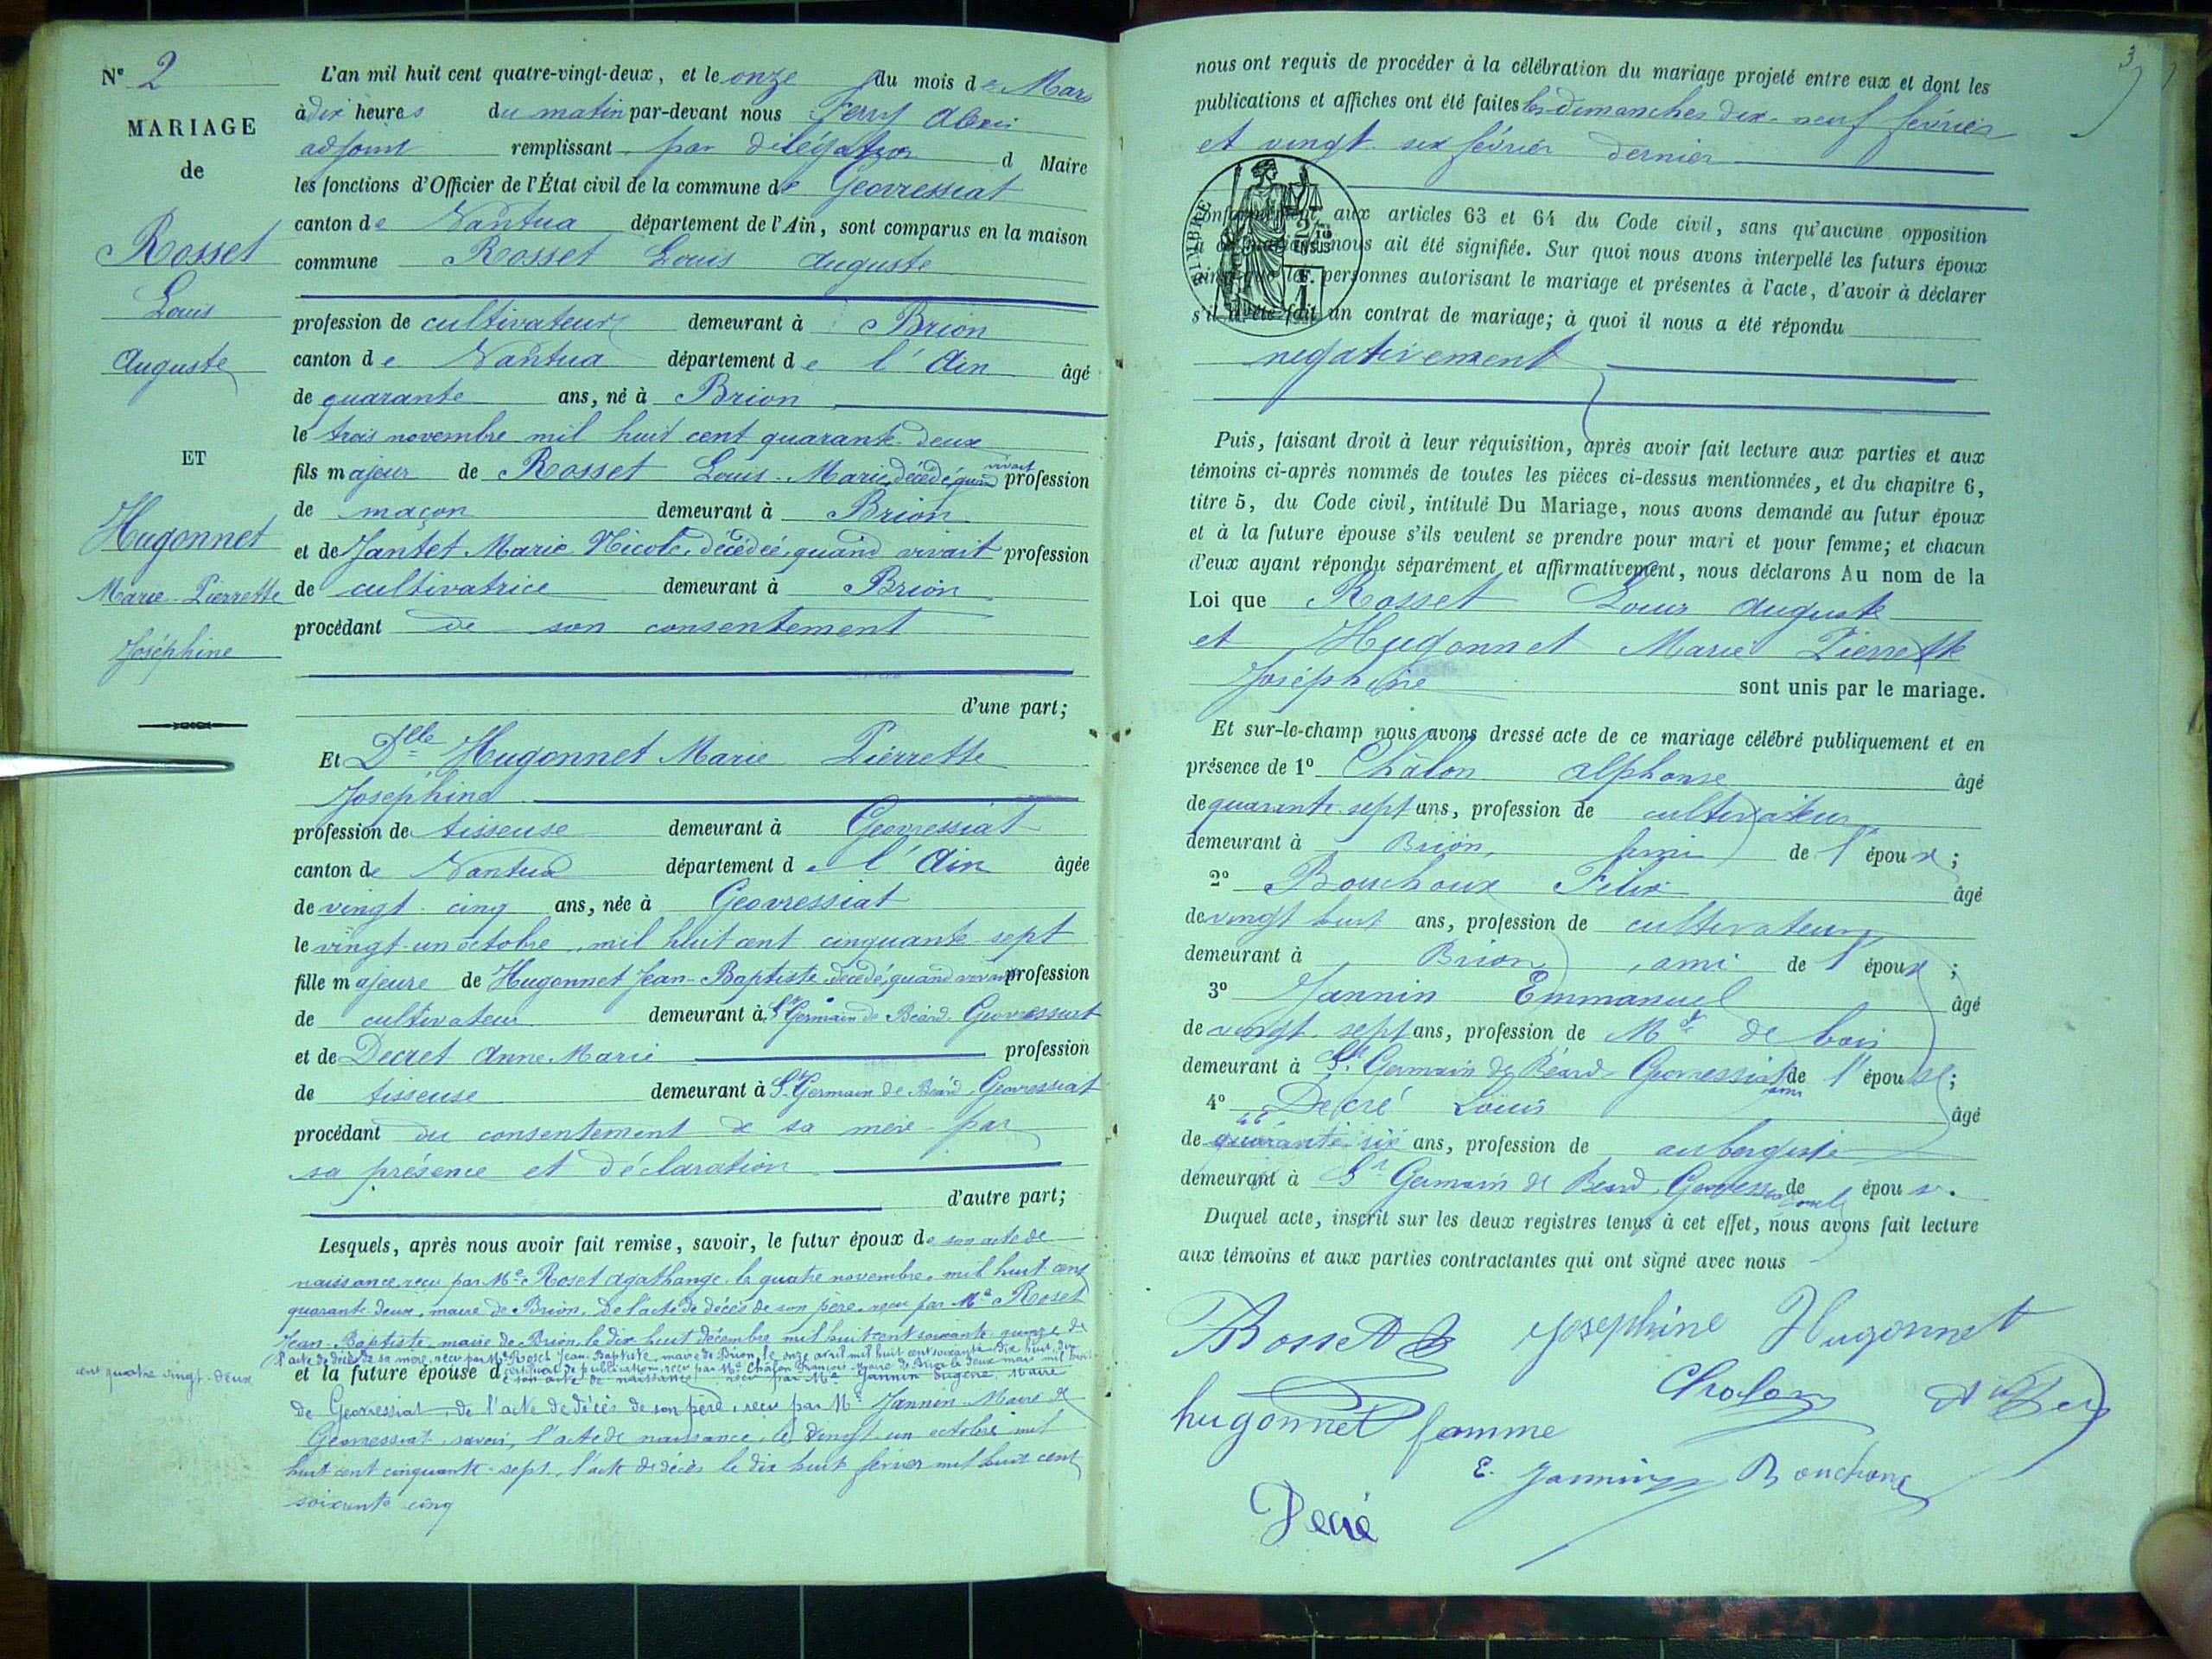 N° 2
MARIAGE
de
Rosset
Louis
Auguste
ET
Hugonnet
Marie-Pierrette
Joséphine
L'an mil huit cent quatre-vingt-deux, et le onze du mois de Mars
à dix heures du matin par-devant nous Ferry Alexis
adjoint remplissant par délégation d Maire
les fonctions d'Officier de l'État civil de la commune de Geovressiat
canton de Nantua département de l'Ain, sont comparus en la maison
commune Rosset Louis Auguste
profession de cultivateur demeurant à Brion
canton de Nantua département de l'Ain âgé
de quarante ans, né à Brion
le trois novembre mil huit cent quarante-deux
fils majeur de Rosset Louis-Marie, décédé, quand vivait profession
de maçon demeurant à Brion
et de Jantet Marie Nicole, décédée, quand vivait profession
de cultivatrice demeurant à Brion
procédant de son consentement
d'une part;
Et Dlle Hugonnet Marie Pierrette
Joséphine
profession de tisseuse demeurant à Geovressiat
canton de Nantua département de l'Ain âgée
de vingt-cinq ans, née à Geovressiat
le vingt-un octobre, mil huit cent cinquante-sept
fille majeure de Hugonnet Jean-Baptiste, décédé, quand vivait profession
de cultivateur demeurant à St Germain de Béard-Geovressiat
et de Decret Anne Marie profession
de tisseuse demeurant à St Germain de Béard-Geovressiat
procédant du consentement de sa mère par
sa présence et déclaration
d'autre part;
Lesquels, après nous avoir fait remise, savoir, le futur époux de son acte de
naissance reçu par Me Roset Agathange le quatre novembre, mil huit cent
quarante-deux, maire de Brion, de l'acte de décès de son père reçu par Me Roset
Jean-Baptiste maire de Brion, le dix huit décembre mil huit cent soixante-quinze de
l'acte de décès de sa mère reçu par Me Roset Jean-Baptiste maire de Brion, le onze avril mil huit cent soixante-dix huit, du
certificat de publication reçu par Me Châlon François maire de Brion le deux mars mil huit
cent quatre vingt-deux
et la future épouse de son acte de naissance reçu par Me Jannin Eugène, Maire
de Geovressiat, de l'acte de décès de son père, reçu par Me Jannin Maire de
Geovressiat savoir, l'acte de naissance, le vingt un octobre mil
huit cent cinquante-sept, l'acte de décès le dix huit février mil huit cent
soixante cinq
3
nous ont requis de procéder à la célébration du mariage projeté entre eux et dont les
publications et affiches ont été faites les dimanches dix-neuf février
et vingt-six février dernier
TIMBRE
2/10
EN SUS
1 F.
conformément aux articles 63 et 64 du Code civil, sans qu'aucune opposition
à ce mariage nous ait été signifiée. Sur quoi nous avons interpellé les futurs époux
ainsi que les personnes autorisant le mariage et présentes à l'acte, d'avoir à déclarer
s'il a été fait un contrat de mariage; à quoi il nous a été répondu
négativement
Puis, faisant droit à leur réquisition, après avoir fait lecture aux parties et aux
témoins ci-après nommés de toutes les pièces ci-dessus mentionnées, et du chapitre 6,
titre 5, du Code civil, intitulé Du Mariage, nous avons demandé au futur époux
et à la future épouse s'ils veulent se prendre pour mari et pour femme; et chacun
d'eux ayant répondu séparément et affirmativement, nous déclarons Au nom de la
Loi que Rosset Louis Auguste
et Hugonnet Marie Pierrette
Joséphine sont unis par le mariage.
Et sur-le-champ nous avons dressé acte de ce mariage célébré publiquement et en
présence de 1° Châlon Alphonse âgé
de quarante-sept ans, profession de cultivateur
demeurant à Brion, ami de l'époux;
2° Bouchoux Félix âgé
de vingt huit ans, profession de cultivateur
demeurant à Brion, ami de l'époux;
3° Jannin Emmanuel âgé
de vingt-sept ans, profession de Md de bois
demeurant à St Germain de Béard-Geovressiat ami de l'épouse;
4° Decré Louis âgé
de quarante six 46 ans, profession de aubergiste
demeurant à St Germain de Béard, Geovressiat de épou
Duquel acte, inscrit sur les deux registres tenus à cet effet, nous avons fait lecture
aux témoins et aux parties contractantes qui ont signé avec nous
Rosset Josephine Hugonnet
Chalon
hugonnet famme
E. Jannin Bouchoux
Decré